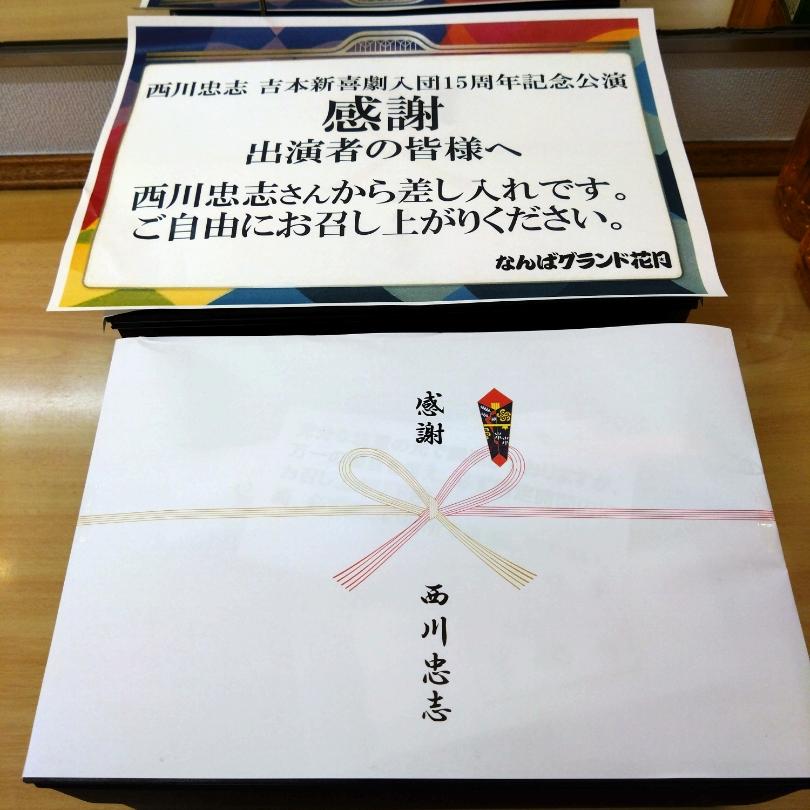 西川忠志 吉本新喜劇入団15周年記念公演
感謝
出演者の皆様へ
西川忠志さんから差し入れです。
ご自由にお召し上がりください。
なんばグランド花月
感謝
西川忠志